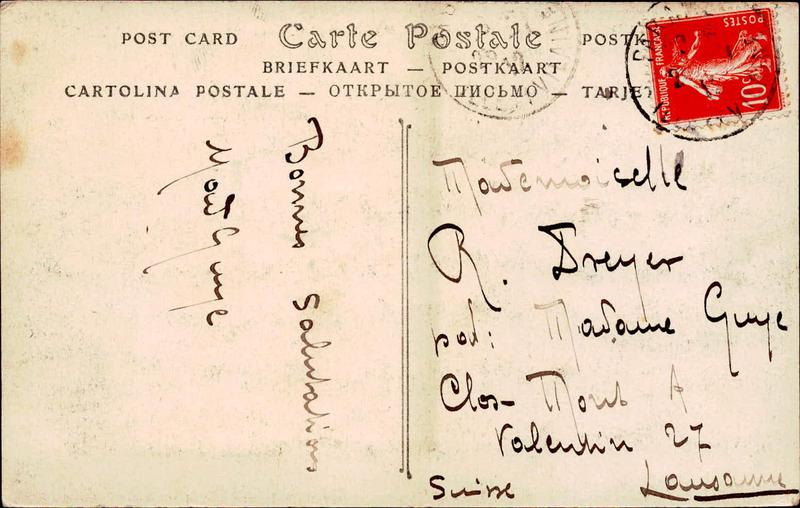 POST CARD Carte Postale POSTK
BRIEFKAART — POSTKAART
CARTOLINA POSTALE — ОТКРЫТОЕ ПИСЬМО — TARJET
REPUBLIQUE FRANÇAISE
POSTES
10c
Bonnes Salutations
Mademoiselle
R. Dreyer
Madame Guye
Clos- Mont A
Valentin 27
Suisse Lausanne